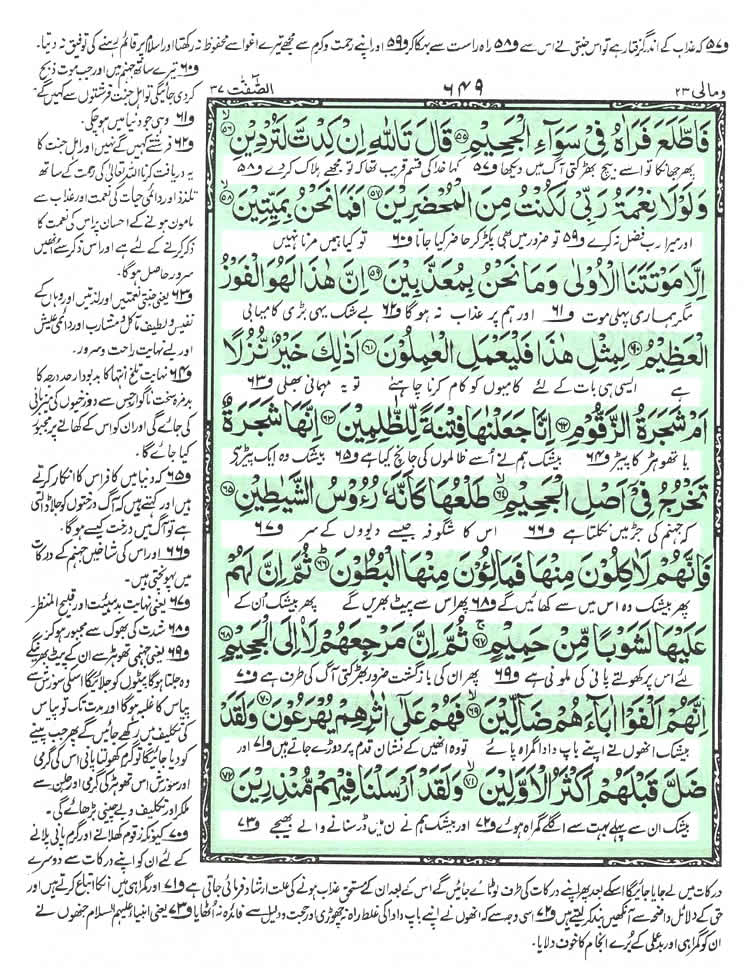 و۵۷ کہ عذاب کے اندر گرفتار ہے تو اس جنتی نے اس سے و۵۸ راہ راست سے بہکا کر و۵۹ اور اپنے رحمت و کرم سے مجھے تیرے اغوا سے محفوظ نہ رکھتا اور اسلام پر قائم رہنے کی توفیق نہ دیتا۔
ومالی ۲۳
۶۴۹
الصّٰفّٰت ۳۷
فَاطَّلَعَ فَرَاٰهُ فِیْ سَوَآءِ الْجَحِیْمِ ﴿۵۵﴾ قَالَ تَاللّٰهِ اِنْ كِدْتَّ لَتُرْدِیْنِ ﴿۵۶﴾
پھر جھانکا تو اسے بیچ بھڑکتی آگ میں دیکھا و۵۷ کہا خدا کی قسم قریب تھا کہ تو مجھے ہلاک کر دے و۵۸
وَلَوْلَا نِعْمَةُ رَبِّیْ لَكُنْتُ مِنَ الْمُحْضَرِیْنَ ﴿۵۷﴾ اَفَمَا نَحْنُ بِمَیِّتِیْنَ ﴿۵۸﴾
اور میرا رب فضل نہ کرے و۵۹ تو ضرور میں بھی پکڑ کر حاضر کیا جاتا و۶۰ تو کیا ہمیں مرنا نہیں
اِلَّا مَوْتَتَنَا الْاُوْلٰی وَمَا نَحْنُ بِمُعَذَّبِیْنَ ﴿۵۹﴾ اِنَّ هٰذَا لَهُوَ الْفَوْزُ
مگر ہماری پہلی موت و۶۱ اور ہم پر عذاب نہ ہوگا و۶۲ بے شک یہی بڑی کامیابی
الْعَظِیْمُ ﴿۶۰﴾ لِمِثْلِ هٰذَا فَلْیَعْمَلِ الْعٰمِلُوْنَ ﴿۶۱﴾ اَذٰلِكَ خَیْرٌ نُّزُلًا
ہے ایسی ہی بات کے لئے کامیوں کو کام کرنا چاہئے تو یہ مہمانی بھلی و۶۳
اَمْ شَجَرَةُ الزَّقُّوْمِ ﴿۶۲﴾ اِنَّا جَعَلْنٰهَا فِتْنَةً لِّلظّٰلِمِیْنَ ﴿۶۳﴾ اِنَّهَا شَجَرَةٌ
یا تھوہڑ کا پیڑ و۶۴ بیشک ہم نے اُسے ظالموں کی جانچ کیا ہے و۶۵ بیشک وہ ایک پیڑ ہے
تَخْرُجُ فِیْۤ اَصْلِ الْجَحِیْمِ ﴿۶۴﴾ طَلْعُهَا كَاَنَّهٗ رُءُوْسُ الشَّیٰطِیْنِ ﴿۶۵﴾
کہ جہنم کی جڑ میں نکلتا ہے و۶۶ اس کا شگوفہ جیسے دیووں کے سر و۶۷
فَاِنَّهُمْ لَاٰكِلُوْنَ مِنْهَا فَمَالِـُٔوْنَ مِنْهَا الْبُطُوْنَ ﴿۶۶﴾ ثُمَّ اِنَّ لَهُمْ
پھر بیشک وہ اس میں سے کھائیں گے و۶۸ پھر اس سے پیٹ بھریں گے پھر بیشک اُن کے
عَلَیْهَا لَشَوْبًا مِّنْ حَمِیْمٍ ﴿۶۷﴾ ثُمَّ اِنَّ مَرْجِعَهُمْ لَاۡاِلَی الْجَحِیْمِ ﴿۶۸﴾
لئے اس پر کھولتے پانی کی ملونی ہے و۶۹ پھر ان کی بازگشت ضرور بھڑکتی آگ کی طرف ہے و۷۰
اِنَّهُمْ اَلْفَوْا اٰبَآءَهُمْ ضَآلِّیْنَ ﴿۶۹﴾ فَهُمْ عَلٰۤی اٰثٰرِهِمْ یُهْرَعُوْنَ ﴿۷۰﴾ وَلَقَدْ
بیشک انھوں نے اپنے باپ دادا گمراہ پائے تو وہ انھیں کے نشان قدم پر دوڑے جاتے ہیں و۷۱ اور
ضَلَّ قَبْلَهُمْ اَكْثَرُ الْاَوَّلِیْنَ ﴿۷۱﴾ وَلَقَدْ اَرْسَلْنَا فِیْهِمْ مُّنْذِرِیْنَ ﴿۷۲﴾
بیشک ان سے پہلے بہت سے اگلے گمراہ ہوئے و۷۲ اور بیشک ہم نے ان میں ڈر سنانے والے بھیجے و۷۳
و۶۰ تیرے ساتھ جہنم میں اور جب موت ذبح
کر دی جائیگی تو اہل جنت فرشتوں سے کہیں گے
و۶۱ وہی جو دنیا میں ہو چکی۔
و۶۲ فرشتے کہیں گے نہیں اور اہل جنت کا
یہ دریافت کرنا اللہ تعالیٰ کی رحمت کے ساتھ
تلذذ اور دائمی حیات کی نعمت اور عذاب سے
مامون ہونے کے احسان پر اس کی نعمت کا
ذکر کرنے کے لئے ہے اور اس ذکر سے انھیں
سرور حاصل ہوگا۔
و۶۳ یعنی جنتی نعمتیں اور لذتیں اور وہاں کے
نفیس و لطیف ماکل و مشارب اور دائمی عیش
اور بے نہایت راحت و سرور۔
و۶۴ نہایت تلخ انتہا کا بدبودار حد درجہ کا
بدمزہ سخت ناگوار جس سے دوزخیوں کی میزبانی
کی جائے گی اور ان کو اس کے کھانے پر مجبور
کیا جائے گا۔
و۶۵ کہ دنیا میں کافر اس کا انکار کرتے
ہیں اور کہتے ہیں کہ آگ درختوں کو جلا ڈالتی
ہے تو آگ میں درخت کیسے ہوگا۔
و۶۶ اور اس کی شاخیں جہنم کے درکات
میں پہونچتی ہیں۔
و۶۷ یعنی نہایت بد ہیئت اور قبیح المنظر۔
و۶۸ شدت کی بھوک سے مجبور ہو کر
و۶۹ یعنی جہنمی تھوہڑ سے ان کے پیٹ بھرینگے
وہ جلتا ہوگا پیٹوں کو جلائیگا اسکی سوزش سے
پیاس کا غلبہ ہوگا اور مدت تک تو پیاس
کی تکلیف میں رکھے جائیں گے پھر جب پینے
کو دیا جائیگا تو گرم کھولتا پانی اس کی گرمی
اور سوزش اس تھوہڑ کی گرمی اور جلن سے
مل کر اور تکلیف و بے چینی بڑھائے گی۔
و۷۰ کیونکہ زقوم کھلانے اور گرم پانی پلانے
کے لئے ان کو اپنے درکات سے دوسرے
درکات میں لے جایا جائیگا اسکے بعد پھر اپنے درکات کی طرف لوٹائے جائیں گے اس کے بعد ان کے مستحق عذاب ہونے کی علت ارشاد فرمائی جاتی ہے و۷۱ اور گمراہی میں انکا اتباع کرتے ہیں اور
حق کے دلائل واضحہ سے آنکھیں بند کر لیتے ہیں و۷۲ اسی وجہ سے کہ انھوں نے اپنے باپ دادا کی غلط راہ نہ چھوڑی اور حجت و دلیل سے فائدہ نہ اُٹھایا و۷۳ یعنی انبیا علیہم السلام جنھوں نے
ان کو گمراہی اور بد عملی کے بُرے انجام کا خوف دلایا۔